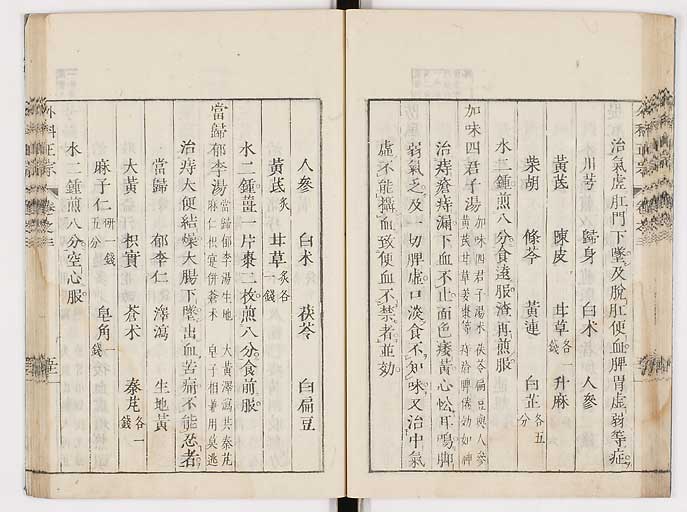 治氣虛肛門下墜及脫肛便血脾胃虛弱等症
川芎 歸身 白术 人參
黃芪 陳皮 甘草各一錢 升麻
柴胡 條芩 黃連 白芷各五分
水二鍾煎八分食遠服渣再煎服
加味四君子湯 加味四君子湯术 茯苓扁豆與人參 黃芪甘草姜棗等 痔瘡脾倦効如神
治痔瘡痔漏下血不止面色痿黃心忪耳鳴脚
弱氣乏及一切脾虛口淡食不知味又治中氣
虛不能攝血致便血不禁者並効
人參 白术 茯苓 白扁豆
黃芪炙 甘草炙各一錢
水二鍾薑一片棗二枚煎八分食前服
當歸郁李湯 當歸郁李湯生地 大黃澤瀉共秦艽 麻仁枳實併蒼术 皂子相兼用莫逃
治痔大便結燥大腸下墜出血苦痛不能忍者
當歸 郁李仁 澤瀉 生地黃
大黃 枳實 蒼术 秦艽各一錢
麻子仁研一錢五分 皂角錢
水二鍾煎八分空心服
外科正宗 卷之三